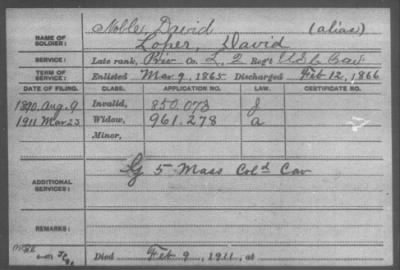 Noble, David (alias)
NAME OF SOLDIER: Loper, David
SERVICE: Late rank, Priv Co. L, 2 Reg't U.S.C. Cav
TERM OF SERVICE: Enlisted Mar. 9, 1865 Discharged Feb 12, 1866
DATE OF FILING. CLASS. APPLICATION NO. LAW. CERTIFICATE NO.
1890 Aug. 9 Invalid, 850.073 J
1911 Mar 23 Widow, 961.278 a
Minor,
ADDITIONAL SERVICES: G 5" Mass Col'd Cav
REMARKS:
Died Feb 9, 1911, at